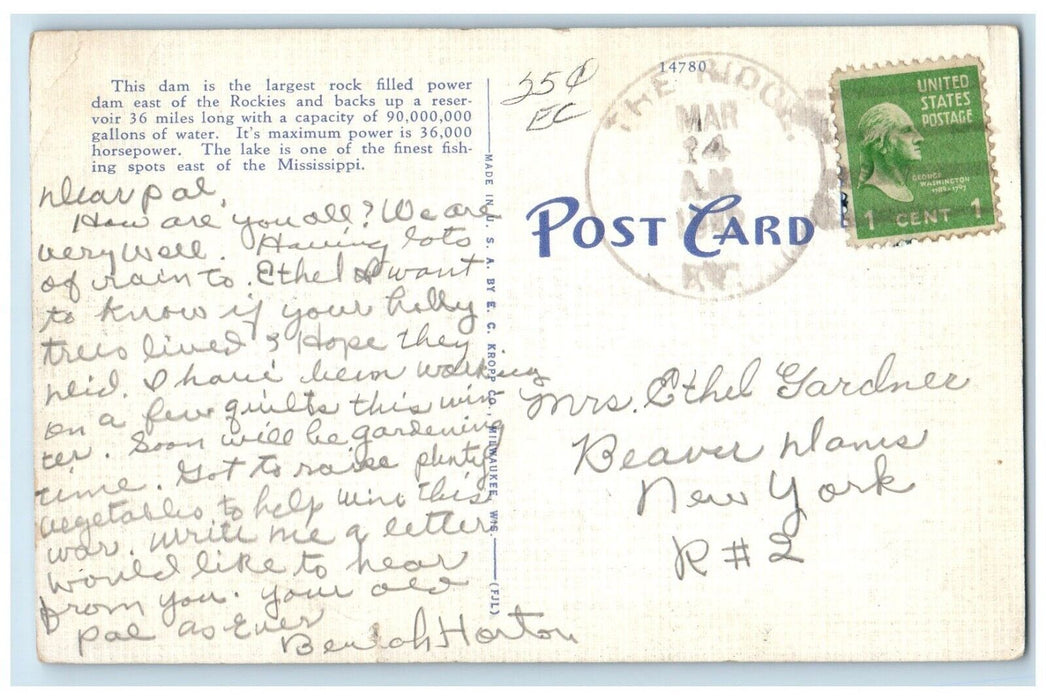 This dam is the largest rock filled power
dam east of the Rockies and backs up a reser-
voir 36 miles long with a capacity of 90,000,000
gallons of water. It's maximum power is 36,000
horsepower. The lake is one of the finest fish-
ing spots east of the Mississippi.
Dear pal,
How are you all? We are
very well. Having lots
of rain to. Ethel I want
to know if your holly
trees lived & Hope they
did. I have been working
on a few quilts this win
ter. Soon will be gardening
time. Got to raise plenty
vegetables to help win this
war. Write me a letter
would like to hear
from you. your old
pal as Ever
Beulah Horton
MADE IN U. S. A. BY E. C. KROPP CO., MILWAUKEE, WIS.
(FJL)
35¢
EC
14780
THE
MAR
24
A.M.
KY.
UNITED
STATES
POSTAGE
GEORGE
WASHINGTON
1789-1797
1 CENT 1
POST CARD
Mrs. Ethel Gardner
Beaver Dams
New York
R#2